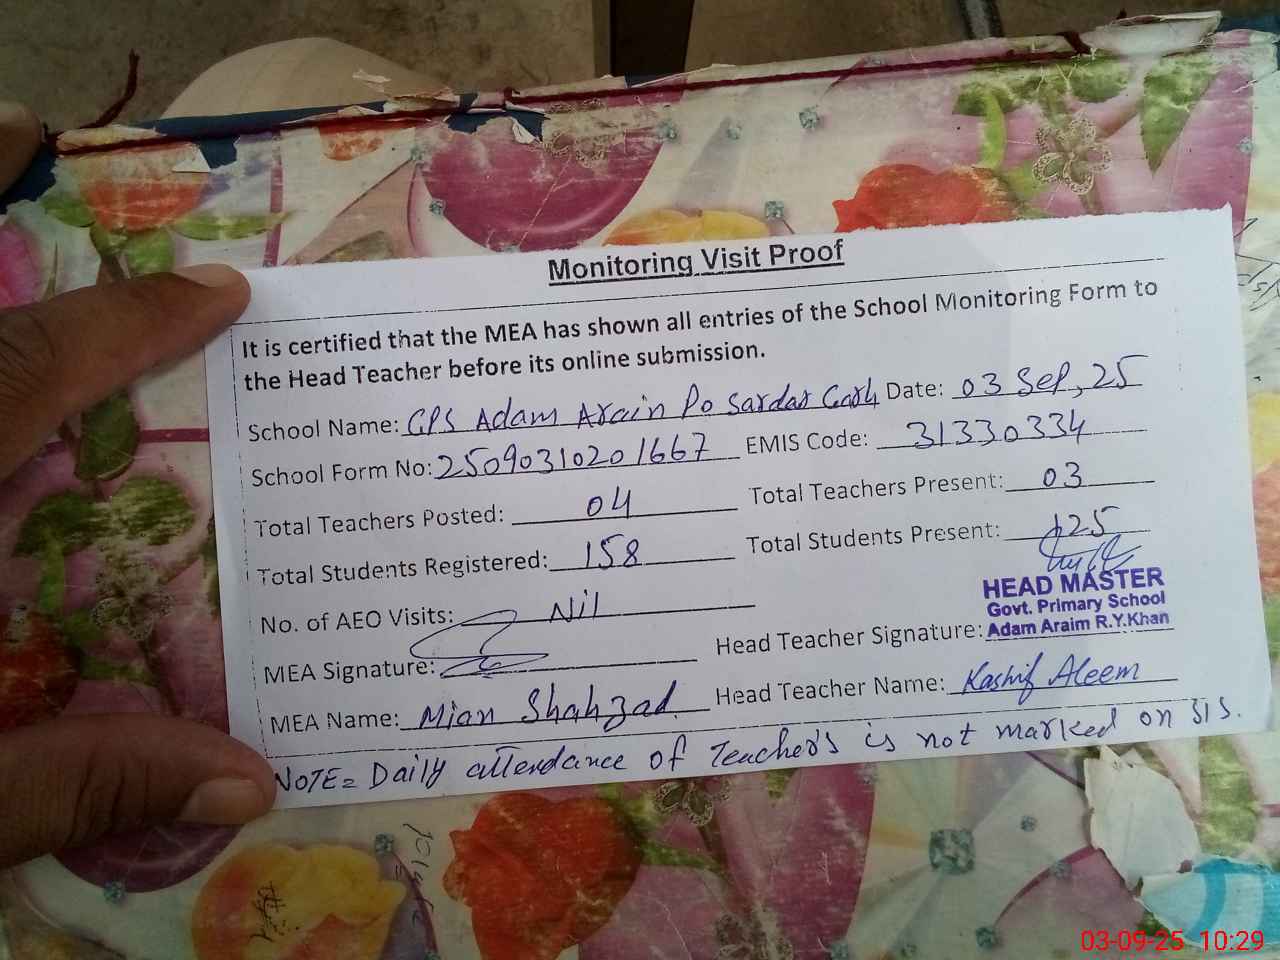 Monitoring Visit Proof
It is certified that the MEA has shown all entries of the School Monitoring Form to
the Head Teacher before its online submission.
School Name: GPS Adam Arain Po Sardar Garh Date: 03 Sep, 25
School Form No: 25090310201667 EMIS Code: 31330334
Total Teachers Posted: 04 Total Teachers Present: 03
Total Students Registered: 158 Total Students Present: 125
No. of AEO Visits: Nil
HEAD MASTER
Govt. Primary School
Adam Araim R.Y.Khan
MEA Signature: Head Teacher Signature:
MEA Name: Mian Shahzad Head Teacher Name: Kashif Aleem
NOTE= Daily attendance of Teacher's is not marked on SIS.
03-09-25 10:29